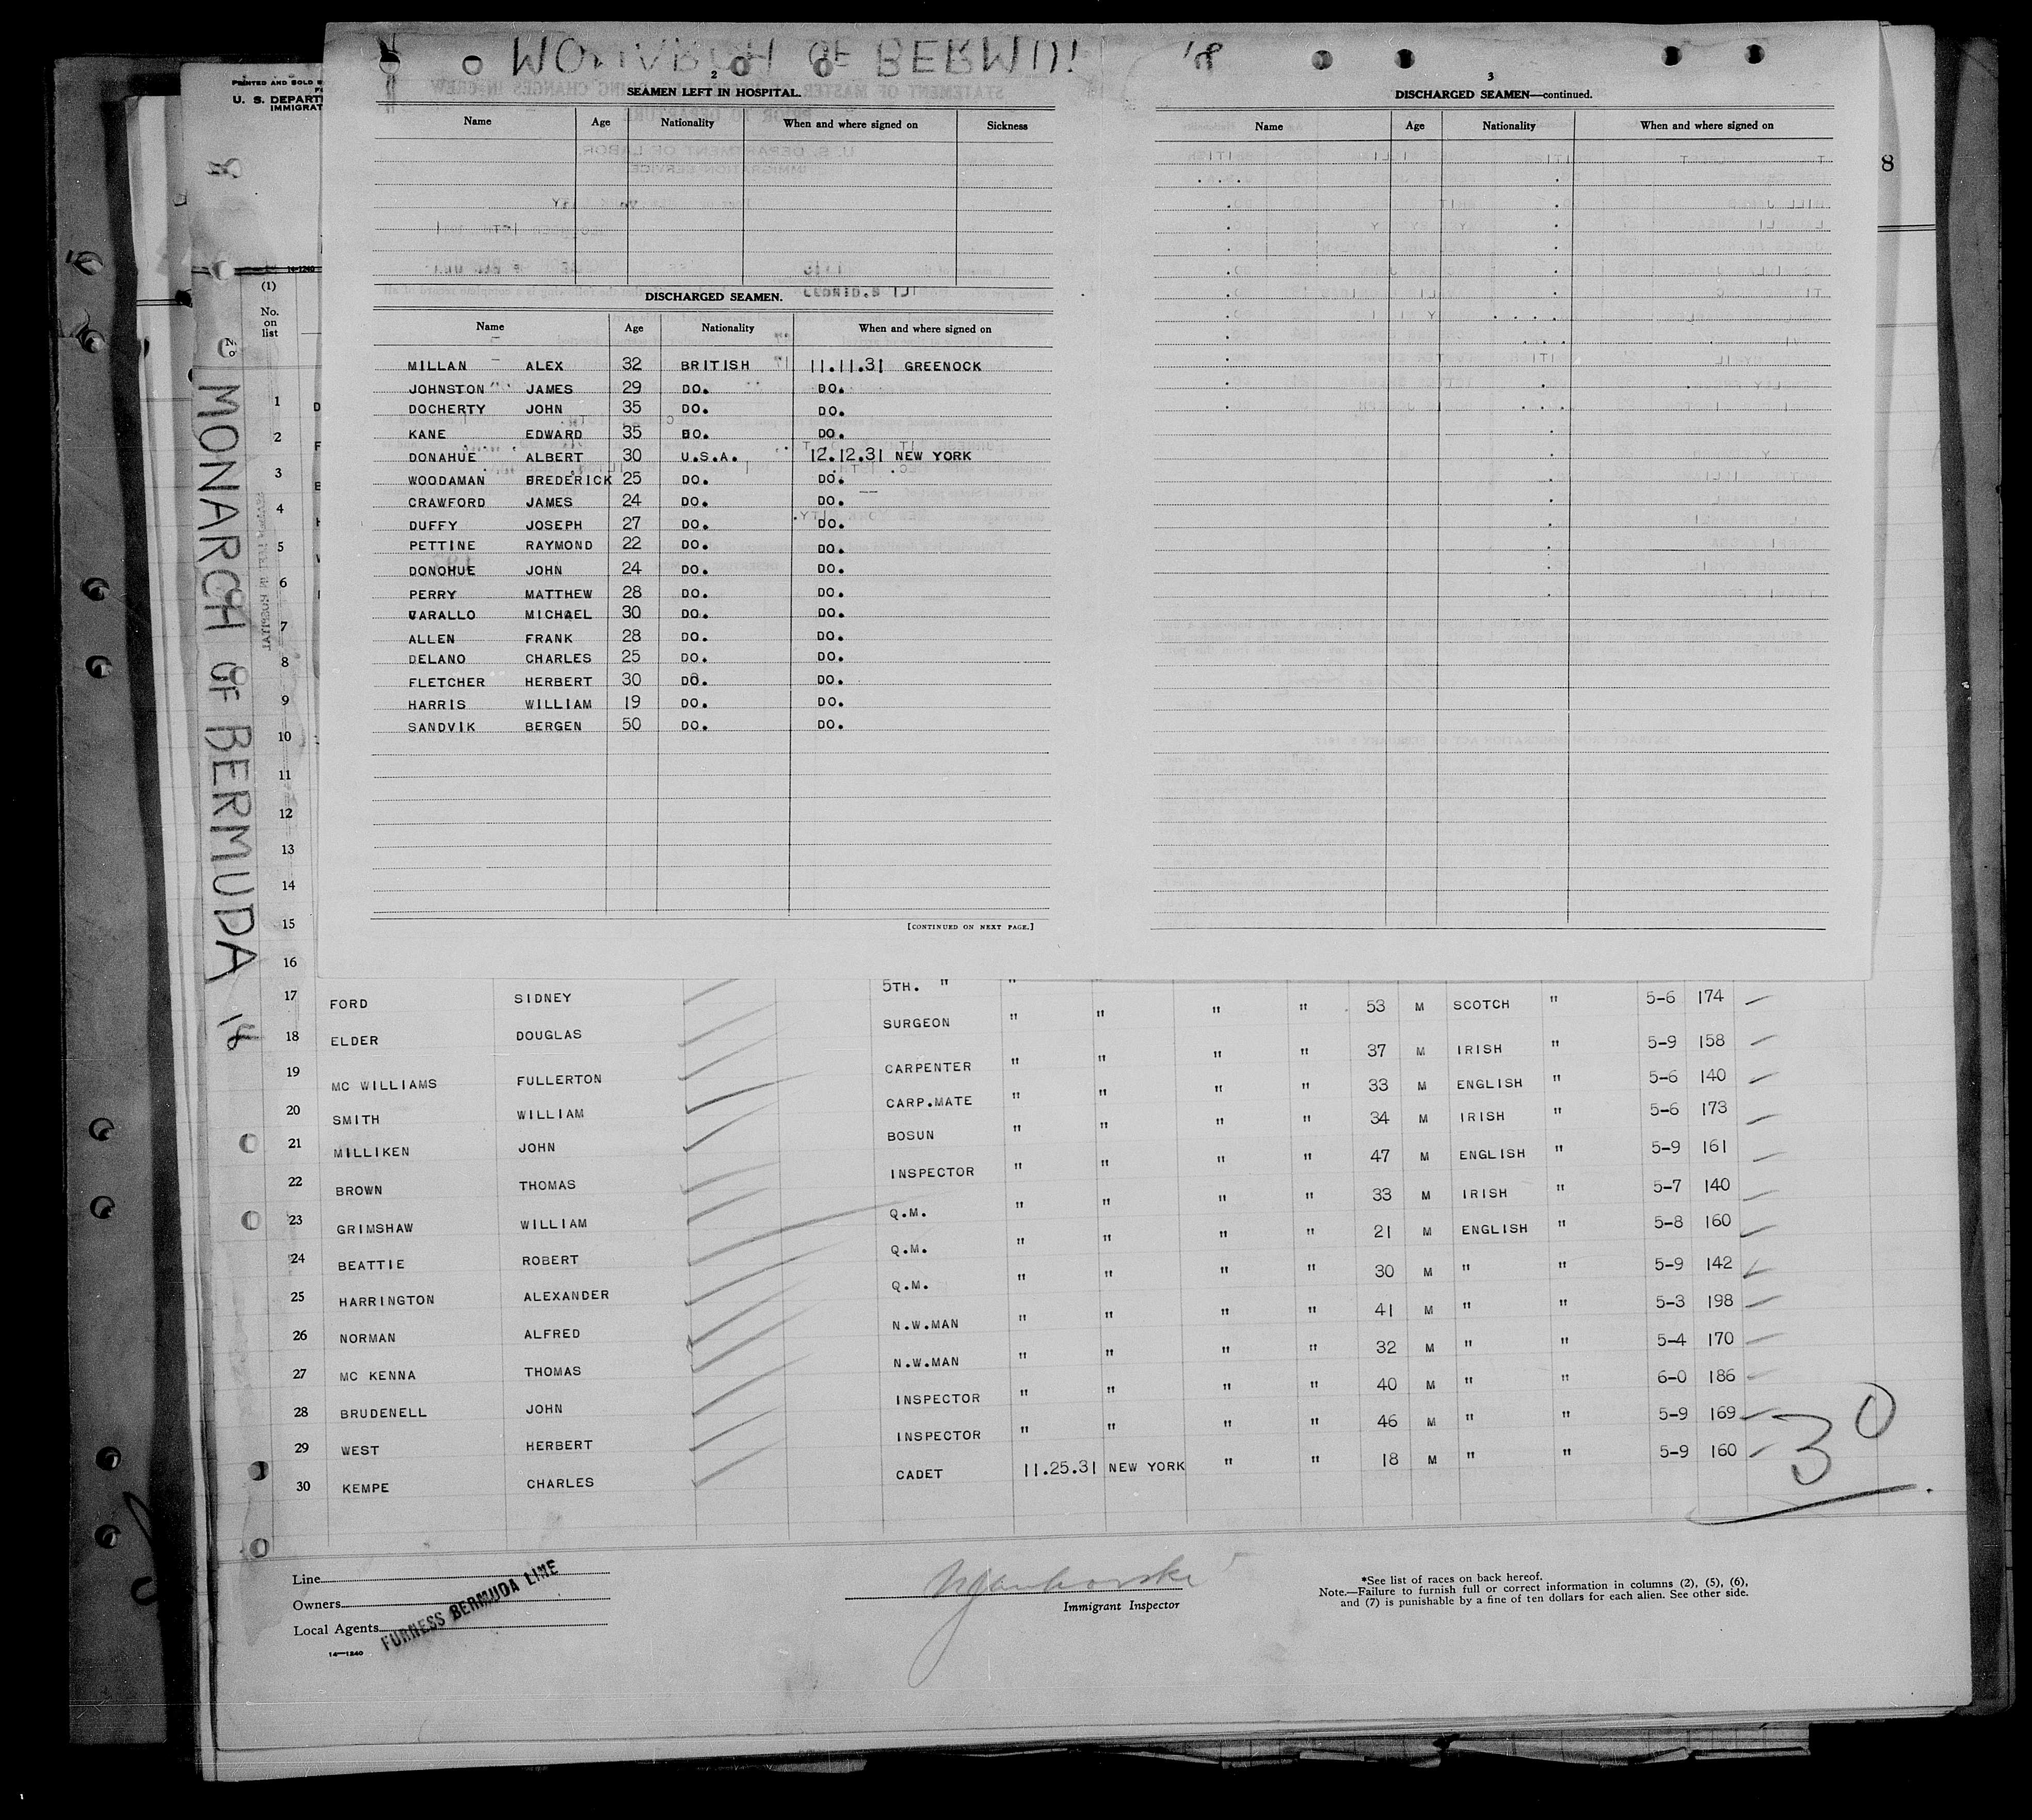 MONARCH OF BERMUD
18
PRINTED AND SOLD
U. S. DEPART
IMMIGRAT
2
SEAMEN LEFT IN HOSPITAL.
Name Age Nationality When and where signed on Sickness
DISCHARGED SEAMEN.
Name Age Nationality When and where signed on
MILLAN ALEX 32 BRITISH 11.11.31 GREENOCK
JOHNSTON JAMES 29 DO. DO.
DOCHERTY JOHN 35 DO. DO.
KANE EDWARD 35 DO. DO.
DONAHUE ALBERT 30 U.S.A. 12.12.31 NEW YORK
WOODAMAN FREDERICK 25 DO. DO.
CRAWFORD JAMES 24 DO. DO.
DUFFY JOSEPH 27 DO. DO.
PETTINE RAYMOND 22 DO. DO.
DONOHUE JOHN 24 DO. DO.
PERRY MATTHEW 28 DO. DO.
VARALLO MICHAEL 30 DO. DO.
ALLEN FRANK 28 DO. DO.
DELANO CHARLES 25 DO. DO.
FLETCHER HERBERT 30 DO. DO.
HARRIS WILLIAM 19 DO. DO.
SANDVIK BERGEN 50 DO. DO.
[CONTINUED ON NEXT PAGE.]
3
DISCHARGED SEAMEN—continued.
Name Age Nationality When and where signed on
8
14-1240
(1)
No.
on
list
1
2
3
4
5
6
7
8
9
10
11
12
13
14
15
16
MONARCH OF BERMUDA 18
5TH. " "
17 FORD SIDNEY SURGEON " " " " 53 M SCOTCH " 5-6 174
18 ELDER DOUGLAS CARPENTER " " " " 37 M IRISH " 5-9 158
19 MC WILLIAMS FULLERTON CARP.MATE " " " " 33 M ENGLISH " 5-6 140
20 SMITH WILLIAM BOSUN " " " " 34 M IRISH " 5-6 173
21 MILLIKEN JOHN INSPECTOR " " " " 47 M ENGLISH " 5-9 161
22 BROWN THOMAS Q.M. " " " " 33 M IRISH " 5-7 140
23 GRIMSHAW WILLIAM Q.M. " " " " 21 M ENGLISH " 5-8 160
24 BEATTIE ROBERT Q.M. " " " " 30 M " " 5-9 142
25 HARRINGTON ALEXANDER N.W.MAN " " " " 41 M " " 5-3 198
26 NORMAN ALFRED N.W.MAN " " " " 32 M " " 5-4 170
27 MC KENNA THOMAS INSPECTOR " " " " 40 M " " 6-0 186
28 BRUDENELL JOHN INSPECTOR " " " " 46 M " " 5-9 169
29 WEST HERBERT CADET 11.25.31 NEW YORK " " 18 M " " 5-9 160
30 KEMPE CHARLES
30
Line
Owners
Local Agents
FURNESS BERMUDA LINE
14—1240
Immigrant Inspector
*See list of races on back hereof.
Note.—Failure to furnish full or correct information in columns (2), (5), (6),
and (7) is punishable by a fine of ten dollars for each alien. See other side.